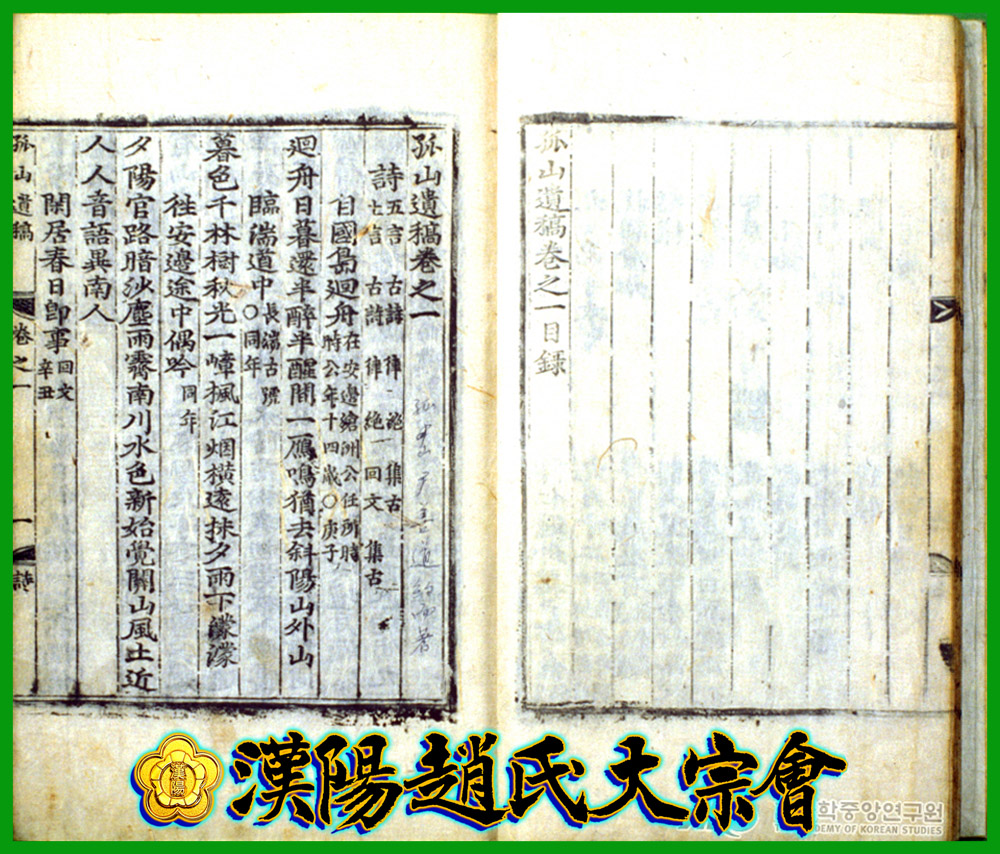 孤山遺稿卷之一目錄
孤山遺稿卷之一
詩 五言 古詩 律 絶 集古
七言 古詩 律 絶 回文 集古
自國島廻舟 在安邊滄洲公任所時
時公年十四歲○庚子
廻舟日暮還半醉半醒間一鴈鳴猶去斜陽山外山
臨湍道中 長湍古號
○同年
暮色千林樹秋光一嶂楓江烟橫遠抹夕雨下濛濛
往安邊途中偶吟 同年
夕陽官路暗沙塵雨霽南川水色新始覺關山風土近
人人音語異南人
閑居春日卽事 回文
辛丑
孤山遺稿 卷之一 一 詩
漢陽
漢陽趙氏大宗會
학중앙연구원
DEMY OF KOREAN STUDIES